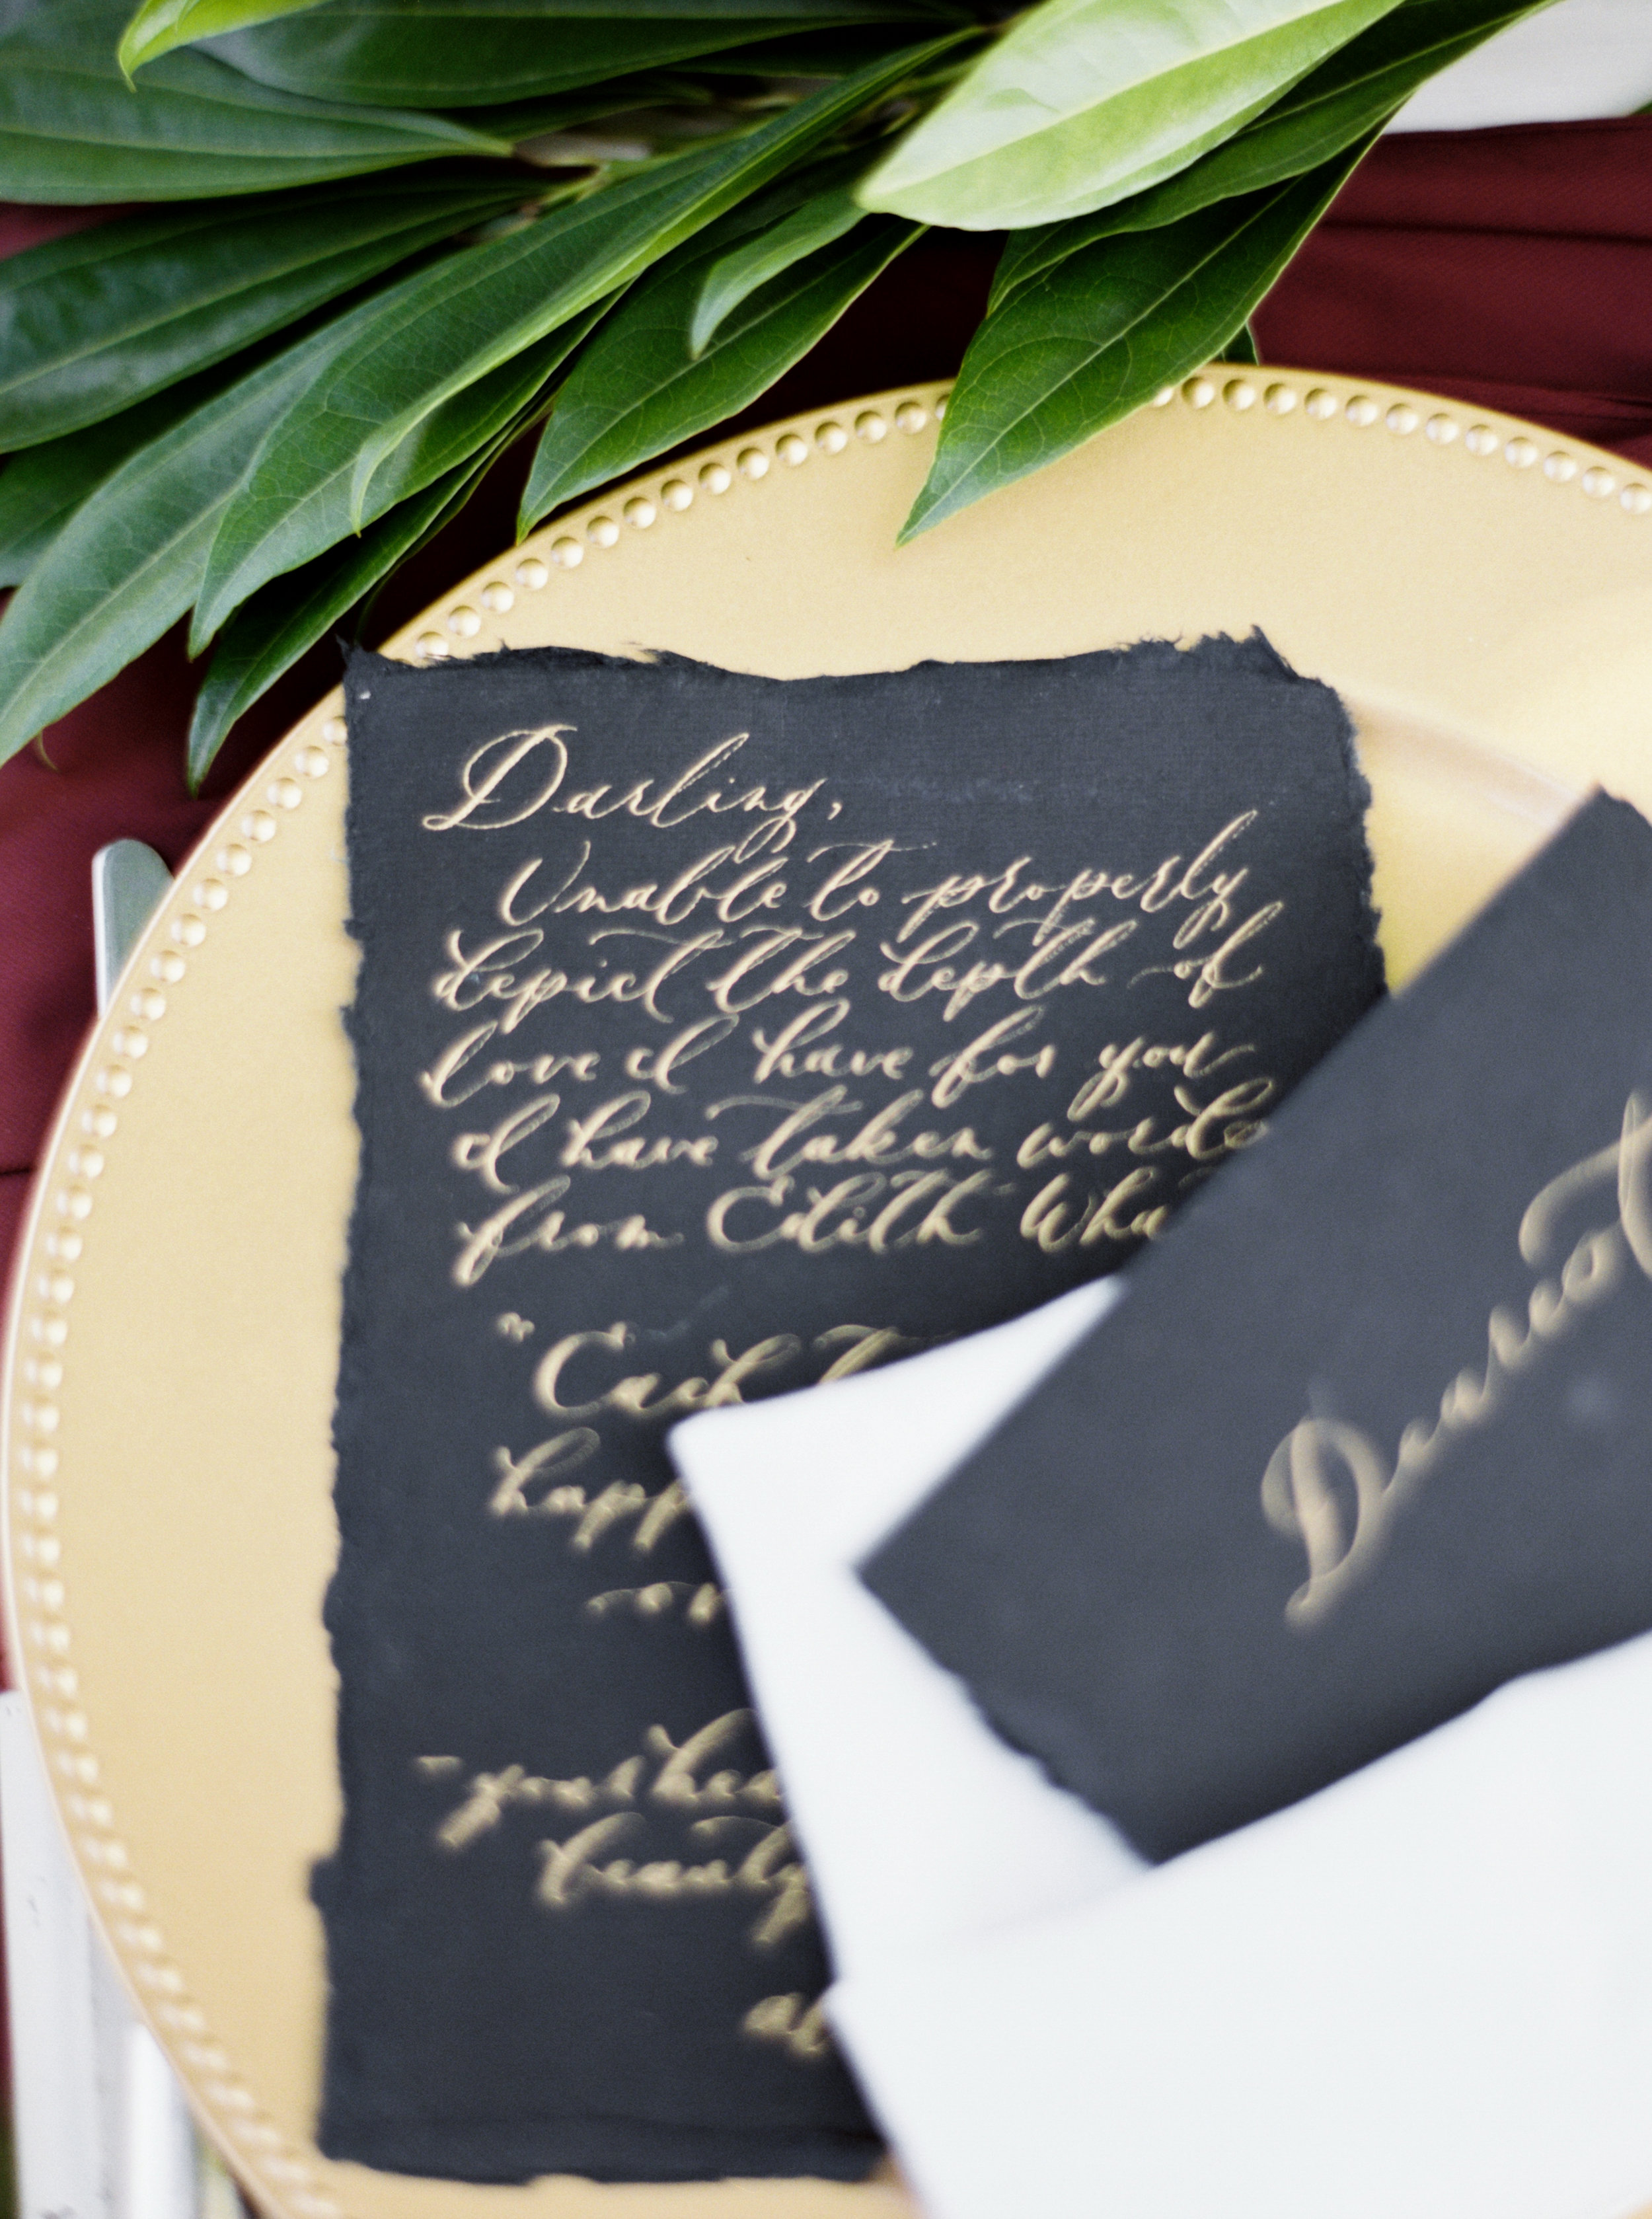 Darling,
Unable to properly
depict the depth of
love I have for you
I have taken words
from Edith Wha
"Each
happ
beauty
Dearest